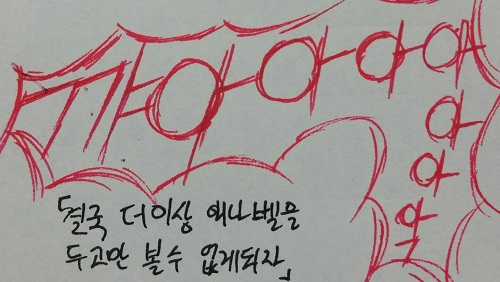 까아아아아
아
아
악
「결국 더이상 애나벨을
두고만 볼수 없게되자」